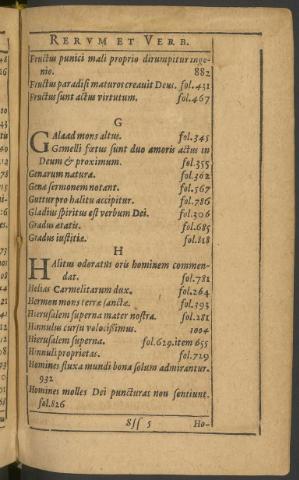 RERVM ET VERB.
Fructus punici mali proprio dirumpitur inge-
nio. 882
Fructus paradisi maturos creauit Deus. fol.431
Fructus sunt actus virtutum. fol.467
G
Galaad mons altus. fol.345
Gemelli fœtus sunt duo amoris actus in
Deum & proximum. fol.355
Genarum natura. fol.362
Genæ sermonem notant. fol.567
Guttur pro halitu accipitur. fol.786
Gladius spiritus est verbum Dei. fol.306
Gradus ætatis. fol.685
Gradus iustitiæ. fol.818
H
Halitus odoratus oris hominem commen-
dat. fol.781
Helias Carmelitarum dux. fol.264
Hermon mons terræ sanctæ. fol.393
Hierusalem superna mater nostra. fol.281
Hinnulus cursu velocissimus. 1004
Hierusalem superna. fol.629.item 655
Hinnuli proprietas. fol.729
Homines fluxa mundi bona solum admirantur.
932
Homines molles Dei puncturas non sentiunt.
fol.826
Sss 5 Ho-